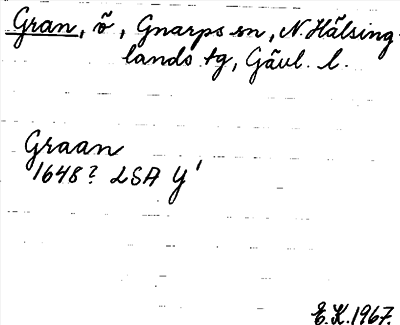 Gran, ö, Gnarps sn, N. Hälsing-
lands tg, Gävl. l.
Graan
1648? LSA Y'
E.K. 1967.